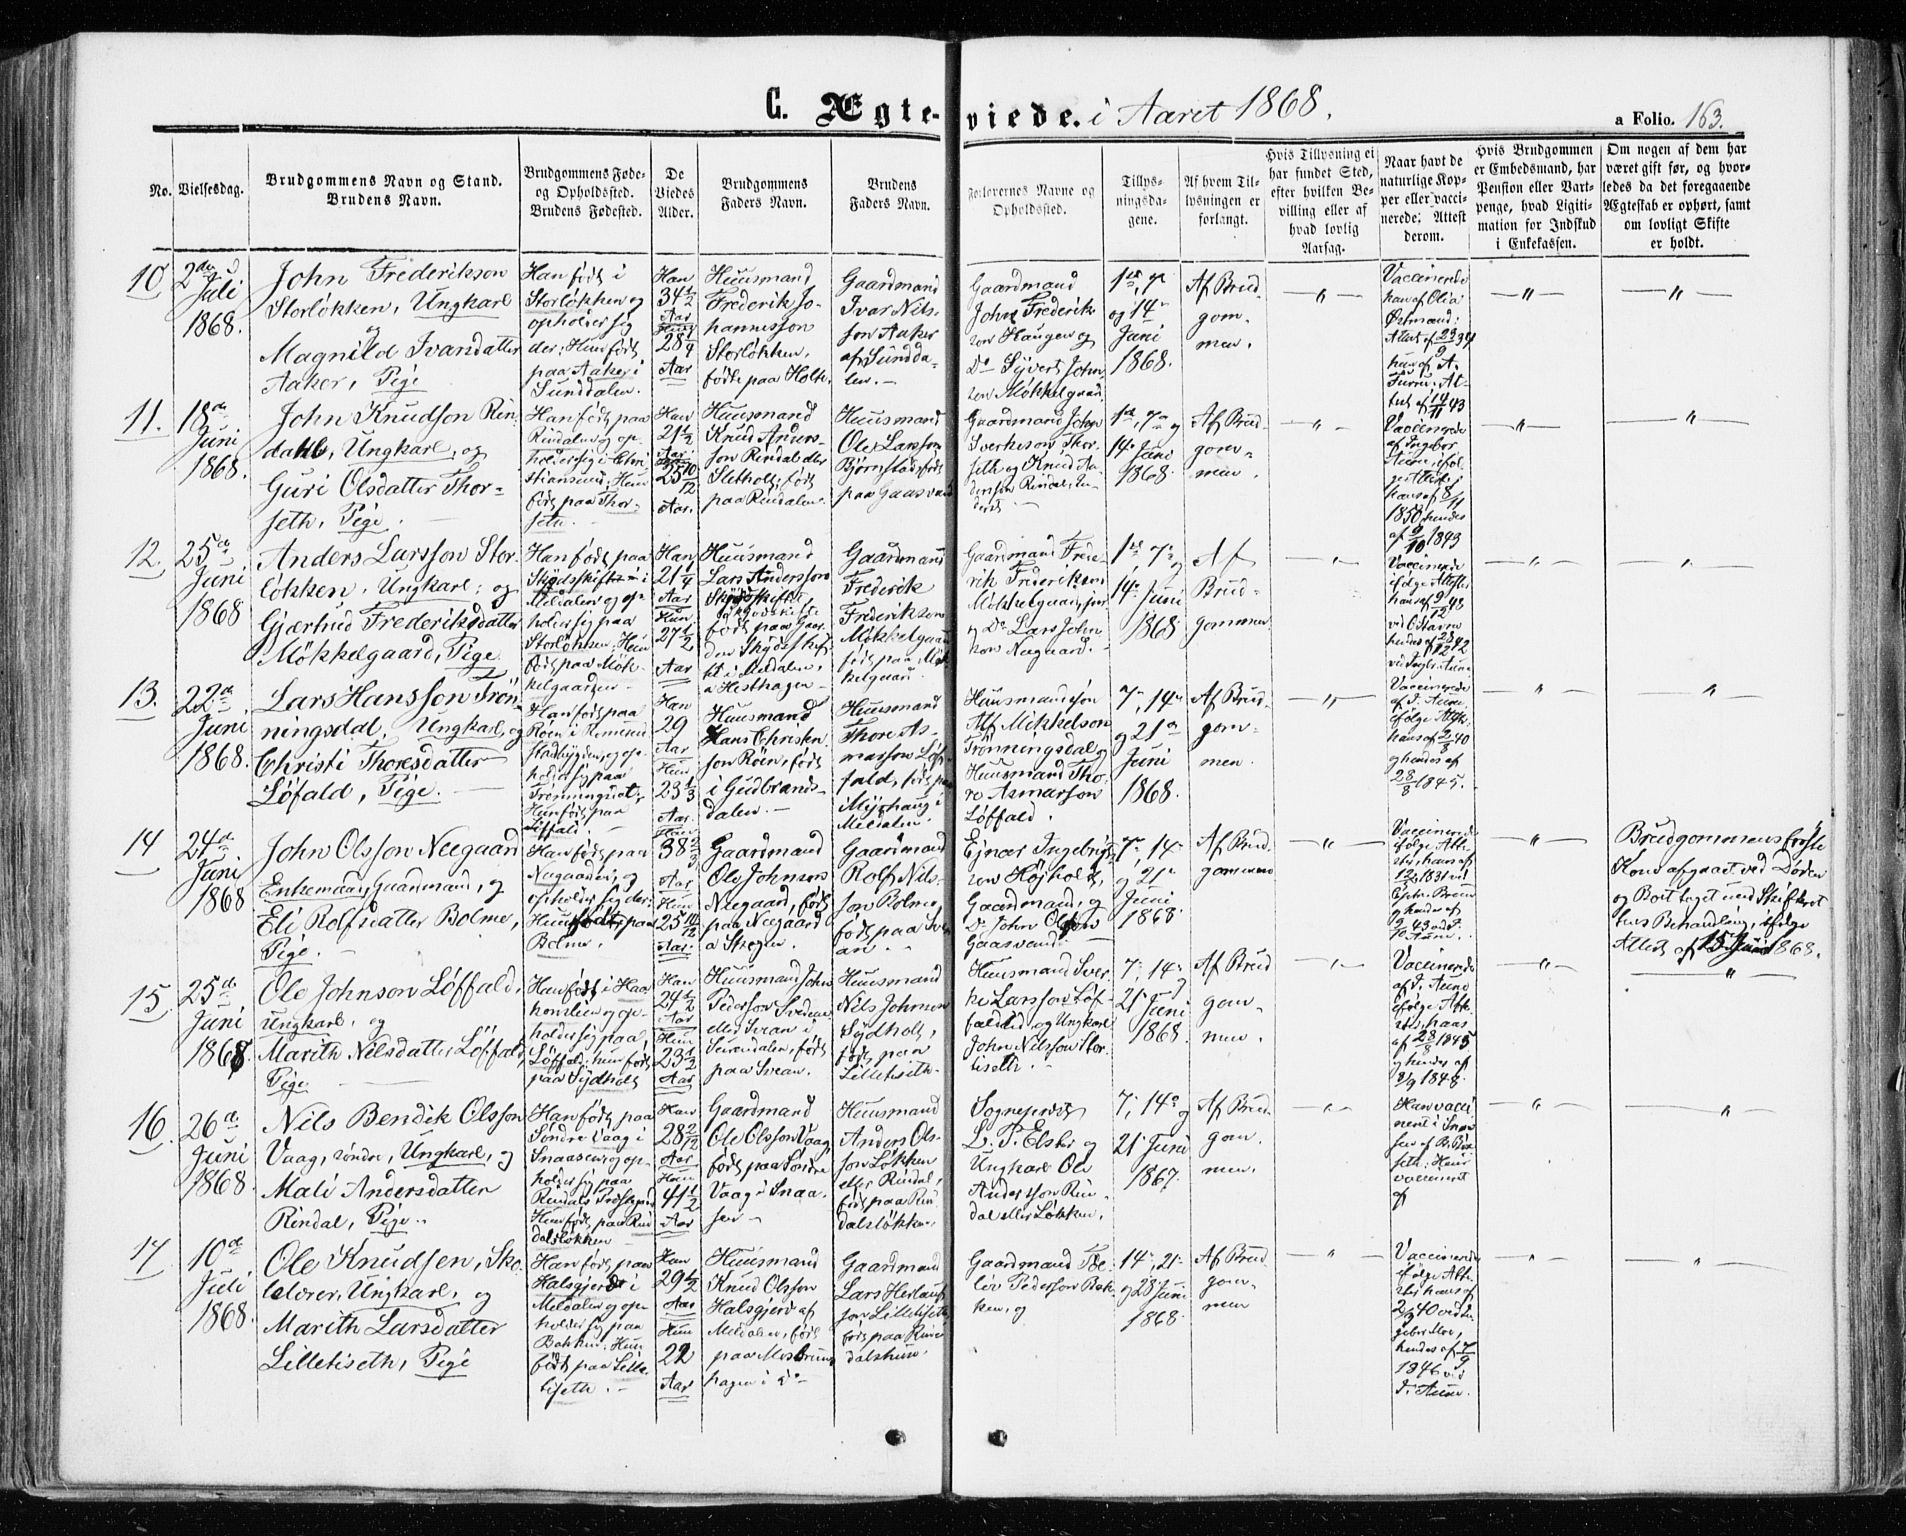 C. Ægte-viede. i Aaret 1868.
a Folio. 163.
No.
Vielsesdag.
Brudgommens Navn og Stand.
Brudens Navn.
Brudgommens Føde-
og Opholdssted.
Brudens Fødested.
De
Viedes
Alder.
Brudgommens
Faders Navn.
Brudens
Faders Navn.
Forlovernes Navne og
Opholdssted.
Tillys-
ningsda-
gene.
Af hvem Til-
lysningen er
forlangt.
Hvis Tillysning ei
har fundet Sted,
efter hvilken Be-
villing eller af
hvad lovlig
Aarsag.
Naar havt de
naturlige Kop-
per eller vacci-
nerede; Attest
derom.
Hvis Brudgommen
er Embedsmand, har
Pension eller Vart-
penge, hvad Ligiti-
mation for Indskud
i Enkekassen.
Om nogen af dem har
været gift før, og hvor-
ledes da det foregaaende
Ægteskab er ophørt, samt
om lovligt Skifte
er holdt.
10
2de
Juli
1868.
John Frederikson
Storløkken, Ungkarl
og
Magnild Ivarsdatter
Aaker, Pige
Han født i
Storløkken og
opholder sig
der; Hun født
paa Aaker i
Sunddalen.
Han
34 1/2
Aar
Hun
28 1/4
Aar
Huusmand
Frederik Jo-
hannesson
Storløkken,
født paa Holte
Gaardmand
Ivar Nils-
son Aaker
af Sundda-
len.
Gaardmand
John Frederik-
son Haugen og
Do Syvert John-
sen Møkkelgaard
1ste, 7de
og 14de
Juni
1868.
Af Brud-
gom-
men.
Vaccinerede
han af Olia
Østmand;
Attest af
hun af A.
Furru. At-
test af 14/11 43
11.
18de
Juni
1868.
John Knudson Rin-
dahl, Ungkarl, og
Guri Olsdatter Thor-
seth, Pige.
Han født paa
Rindalen og op-
holder sig i Chri-
stiansund; Hun
født paa Thor-
seth.
Han
21 1/2
Aar.
Hun
25 10/12
Aar.
Huusmand
Knud Anders-
son Rindal eller
Sletholt; født
paa Rindalen.
Huusmand
Ole Larsson
Bjørnstad, født
paa Gaasvand
Gaardmand John
Sverkeson Thor-
seth og Knud An-
dersson Rindal, In-
derst.
1ste, 7de og
14de Juni
1868.
Af Brud-
gom-
men.
Vaccinerede
af Ingebor
Aune, iføl-
ge Attest;
hans af 8/11
1850 hendes
af 9/10 1843
12.
25de
Juni
1868
Anders Larsson Stor-
løkken, Ungkarl; og
Gjærtrud Frederiksdatter
Møkkelgaard, Pige.
Han født paa
Skjødskift i
Meldalen og op-
holder sig paa
Storløkken; Hun
født paa Møk-
kelgaarden
Han
21 1/4
Aar
Hun
27 1/2
Aar
Huusmand
Lars Andersson
Skjødskift
født paa Gaar-
den Skjødskif-
tet i Meldalen,
a Hesthagen
Gaardmand
Frederik
Frederikson
Møkkelgaard
født paa Møk-
kelgaard
Gaardmand Frede-
rik Frederiksen
Møkkelgaard, jun
og Do Lars John-
son Neegaard.
1ste, 7de og
14de Juni
1868
Af
Brud-
gommen
Vaccinerede
ifølge Attester
hans af 9/12 48
ved C Stavne
hendes af 28/12 42
ved Ingb. Aune
13.
22de
Juni
1868.
Lars Hansson Trøn-
ningsdal, Ungkarl, og
Christi Thoresdatter
Løfald, Pige.
Han født paa
Røen i
Stadsbygden og op-
holder sig paa
Trønningsdal;
Hun født paa
Løffald.
Han
29
Aar
Hun
23 1/3
Aar.
Huusmand
Hans Christen-
son Røen, født
i Gudbrands-
dalen.
Huusmand
Thore As-
marson Løf-
fald, født paa
Myrhaug i
Meldalen.
Huusmandssøn
Alf Mikkelson
Trønningsdal og
Huusmand Tho-
re Asmarson
Løffald.
7de, 14de
og 21de
Juni
1868.
Af Brud-
gom-
men.
Vaccinerede
af I. Aune
ifølge Attest
hans af 2/8 40
og hendes af
28/8 1845.
14
24de
Juni
1868
John Olsson Neegaard
Enkemand, Gaardmand, og
Eli Rolfsdatter Bolme,
Pige.
Han født paa
Neegaarden, og
opholder sig der;
Hun født paa
Bolme.
Han
38 2/3
Aar
Hun
25 10/12
Aar.
Gaardmand
Ole Johnson
Neegaard, født
paa Neegaard
a Stegen
Gaardmand
Rolf Nils-
son Bolme,
født paa Sve-
an.
Ejnar Ingebrigt-
sen Højholt,
Gaardmand, og
Do John Olsson
Gaasvand.
7de, 14de
og 21de
Juni
1868.
Af Brud-
gommen
Vaccinerede
ifølge Atte-
ster, hans af
12/5 1831 ved
og hendes af
9/10 43 ved I.
Aune.
Brudgommens første
Kone afgaaet ved Døden
og Boet taget under Skifteret-
tens Behandling, ifølge
Attest af 15 Juni 1868.
15.
25de
Juni
1868
Ole Johnson Løffald,
Ungkarl, og
Marith Nilsdatter Løffald,
Pige
Han født i Haa-
konslien og op-
holder sig paa,
Løffald; hun født
paa Sydholt
Han
24 1/2
Aar
Hun
23 1/2
Aar
Huusmand John
Pederson Sveden
eller Svean i
Surendalen, født
paa Svean.
Huusmand
Nils Johnsen
Sydholt,
født paa
Lilletiseth.
Huusmand Sver-
ke Larsson Løf-
faldlid og Ungkarl
John Nilsson Stor-
tiseth.
7de, 14de og
21de Juni
1868.
Af Brud-
gom-
men.
Vaccinerede
af I. Aune
ifølge Atte-
ster, hans
af 28/8 1845
og hendes af
1/9 1848.
16.
26de
Juni
1868.
Nils Bendik Olsson
Vaag, søndre, Ungkarl, og
Mali Andersdatter
Rindal, Pige.
Han født paa
Søndre Vaag i
Snaasen og op-
holder sig paa
Rindals Præstegaard
Hun født paa Rin-
dalsløkken
Han
28 2/12
Aar
Hun
41 1/2
Aar
Gaardmand
Ole Olsson Vaag
født paa Søndre
Vaag i Snaa-
sen
Huusmand
Anders Ols-
son Løkken
eller Rindal,
født paa Rin-
dalsløkken.
Sognepræst
L. P. Elster og
Ungkarl Ole
Andersson Rin-
dal eller Løkken.
7de, 14de og
21de Juni
1867.
Af Brud-
gom-
men.
Han vacci-
neret i Snaa-
sen af
Hun
vaccineret
af
17
10de
Juli
1868.
Ole Knudsen, Sko-
lelærer, Ungkarl, og
Marith Larsdatter
Lilletiseth, Pige
Han født paa
Halsgjerdt i
Meldalen og op-
holder sig paa
Bakken; Hun
født paa Lille-
tiseth.
Han
29 1/2
Aar
Hun
22
Aar
Huusmand
Knud Olsson
Halsgjerd af
Meldalen, født
paa Mosbrun-
hagen i Do
Gaardmand
Lars Herlauf-
son Lilletiseth
født paa Rin-
dalshuse.
Gaardmand Tøl-
løv Pederson Bak-
ken, og
14de, 21de
og 28de Juni
1868.
Af Brud-
gom-
men
Vaccinerede
ifølge Atte-
ster hans af
2/9 40 ved In-
gebr. Moe,
hendes af 7/9
1846 ved
I. Aune.